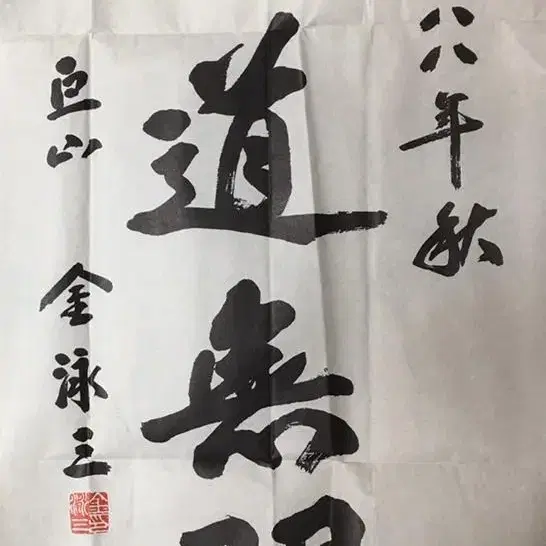 八八年秋
道無
巨山 金泳三